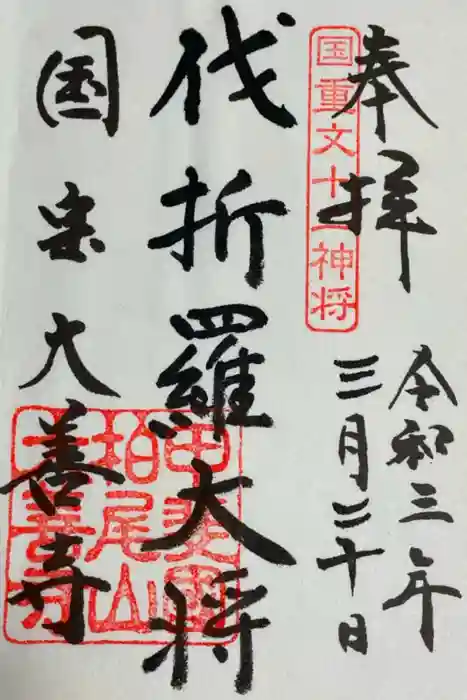 奉拝
令和三年
三月三十日
国重文十二神将
伐折羅大将
国宝大善寺
甲斐國
柏尾山
大善寺